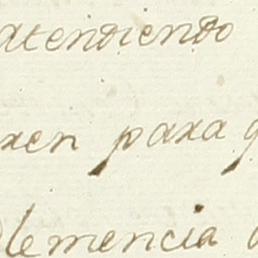 atendiendo
xen para q
clemencia